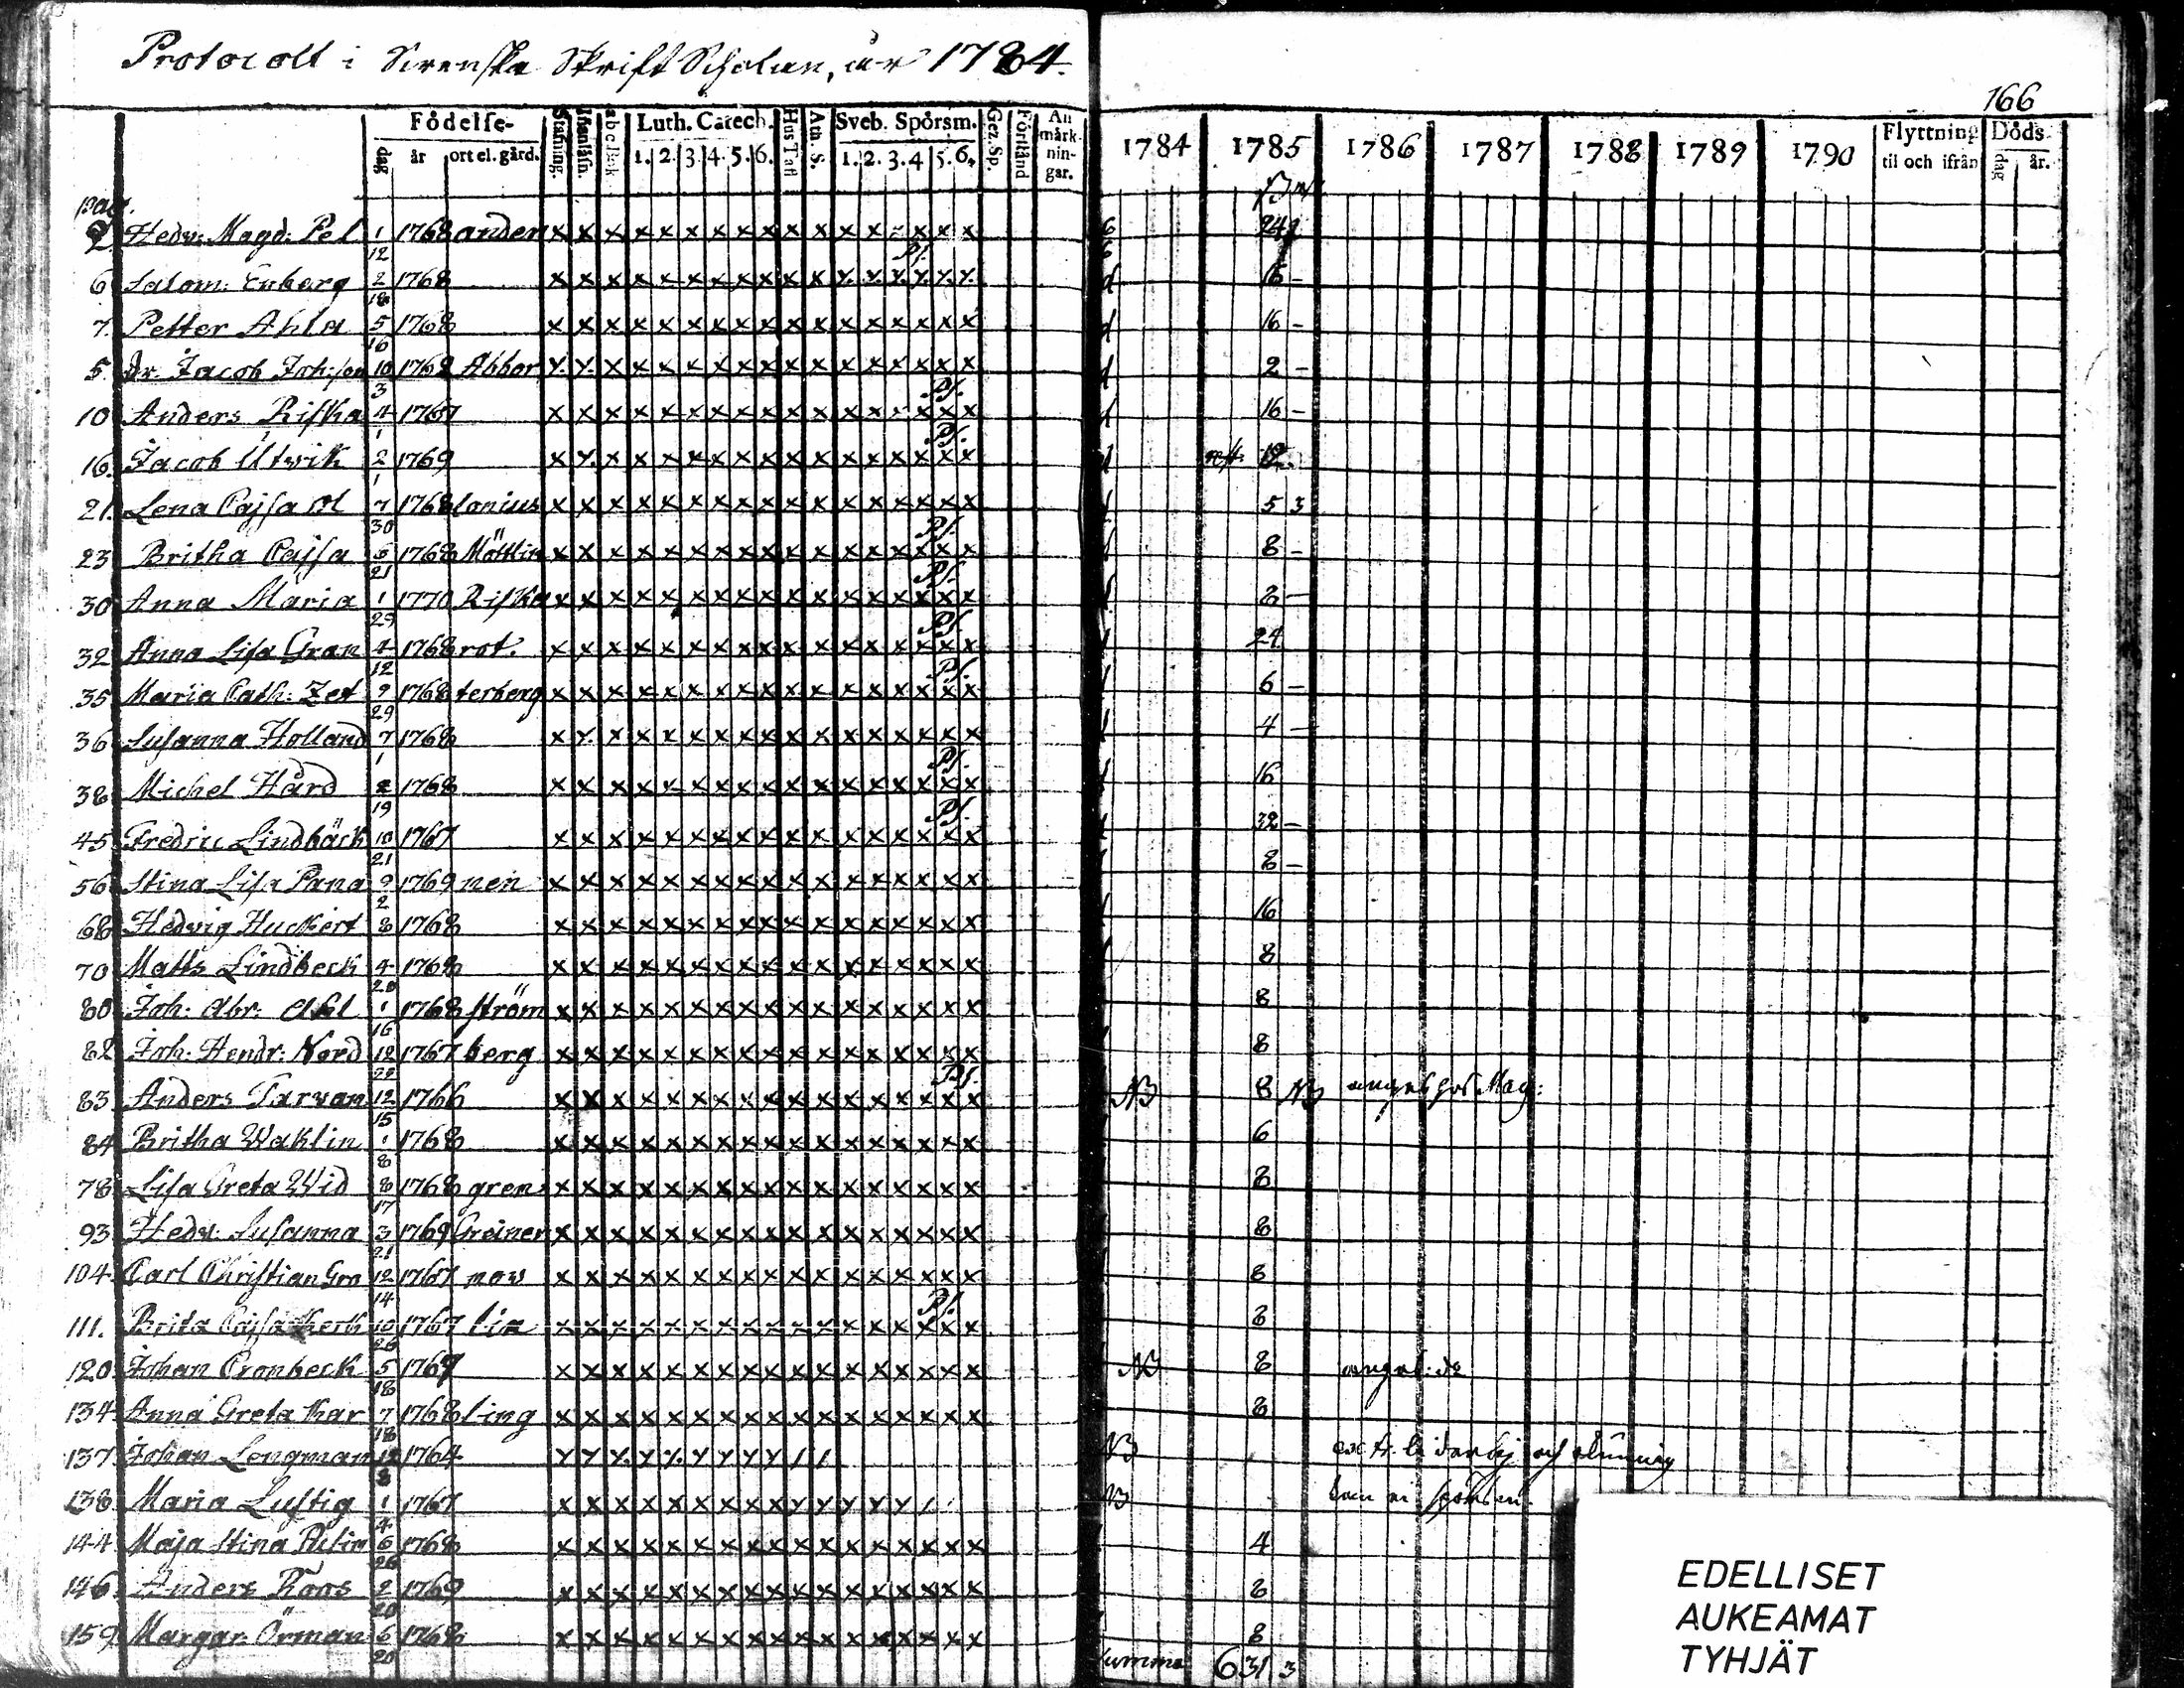 Protocoll i Svenska Skrift Scholan, år 1784.
166
Födelse-
dag år ort el. gård.
Stafning. Inanläsn. abc Bok
Luth. Catech. 1. 2. 3. 4. 5. 6.
Hus Tafl Ath. S.
Sveb. Spörsm. 1. 2. 3. 4 5. 6.
Gez. Sp. Förstånd
An märk- nin- gar.
1784 1785 1786 1787 1788 1789 1790
Flyttning til och ifrån
Döds dag år.
pag.
2 Hedv: Magd: Pel 1/12 1768 ander x x x x x x x x x x x x x - x x x 6 24
6 Salom: Enberg 2/18 1768 x x x x x x x x x x x y. y. y. y. y. y. Pf. d 16 -
7. Petter Ahla 5/16 1768 x x x x x x x x x x x x x x x x x d 16 -
5. Dr. Jacob Joh:son 10/3 1768 Abbor y. y. x x x x x x x x x x x x x x x d 2 -
10 Anders Rifka 4/1 1767 x x x x x x x x x x x x x - x x x Pf. d 16 -
16. Jacob Utvik 2/1 1769 x y. x x x x x x x x x x x x x x x Pf. d 12
21. Lena Cajsa Al 7/30 1768 lonius x x x x x x x x x x x x x x x x x 5 3
23 Britha Cajsa 5/21 1768 Möttlin x x x x x x x x x x x x x x x x x Pf. 8 -
30 Anna Maria 1/29 1770 Rifka x x x x x x x x x x x x x x x x x Pf. 8 -
32 Anna Lisa Gran 4/12 1768 rot. x x x x x x x x x x x x x x x x x Pf. 24
35 Maria Cath: Zet 9/29 1768 terberg x x x x x x x x x x x x x x x x x Pf. 6 -
36 Susanna Holland 7/1 1768 x y. x x x x x x x x x x x x x x x 4 -
38 Michel Hård 2/19 1768 x x x x x x x x x x x x x x x x x Pf. 16
45 Fredric Lindbäck 10/21 1767 x x x x x x x x x x x x x x x x x Pf. 32 -
56 Stina Lisa Pana 9/2 1769 nen x x x x x x x x x x x x x x x x x 8 -
68 Hedvig Huckert 8 1768 x x x x x x x x x x x x x x x x x 16
70 Matts Lindbeck 4/20 1768 x x x x x x x x x x x x x x x x x 8
80 Joh: Abr: Ahl 1/16 1768 ström x x x x x x x x x x x x x x x x x 8
82 Joh: Hendr: Nord 12/29 1767 berg x x x x x x x x x x x x x x x x x 8
83 Anders Tarvan 12/15 1766 x x x x x x x x x x x x x x x x x Pf. NB 8 NB
84 Britha Waklin 1/8 1768 x x x x x x x x x x x x x x x x x 6
78 Lisa Greta Wid 8/17 1768 gren x x x x x x x x x x x x x x x x x 8
93 Hedv. Susanna 3/21 1769 Greiner x x x x x x x x x x x x x x x x x 8
104 Carl Christian Gro 12/14 1767 now x x x x x x x x x x x x x x x x x 8
111. Brita Cajsa 10/26 1767 lin x x x x x x x x x x x x x x x x x Pf. 8
120 Johan Cronbeck 5/18 1767 x x x x x x x x x x x x x x x x x NB 8
134 Anna Greta Kar 7/18 1768 ling x x x x x x x x x x x x x x x x x 8
137 Johan Lengman 12/8 1764 y y y. y y. y y y y / / NB
138 Maria Luftig 1/4 1767 x x x x x x x x x y y y y y / / NB
144 Maja Stina Pelin 6/26 1768 x x x x x x x x x x x x x x x x x 4
146 Anders Roos 2/20 1769 x x x x x x x x x x x x x x x x x 8
159 Margar: Örman 6/20 1768 x x x x x x x x x x x x x x x x x 8
Summa 631 3
EDELLISET
AUKEAMAT
TYHJÄT